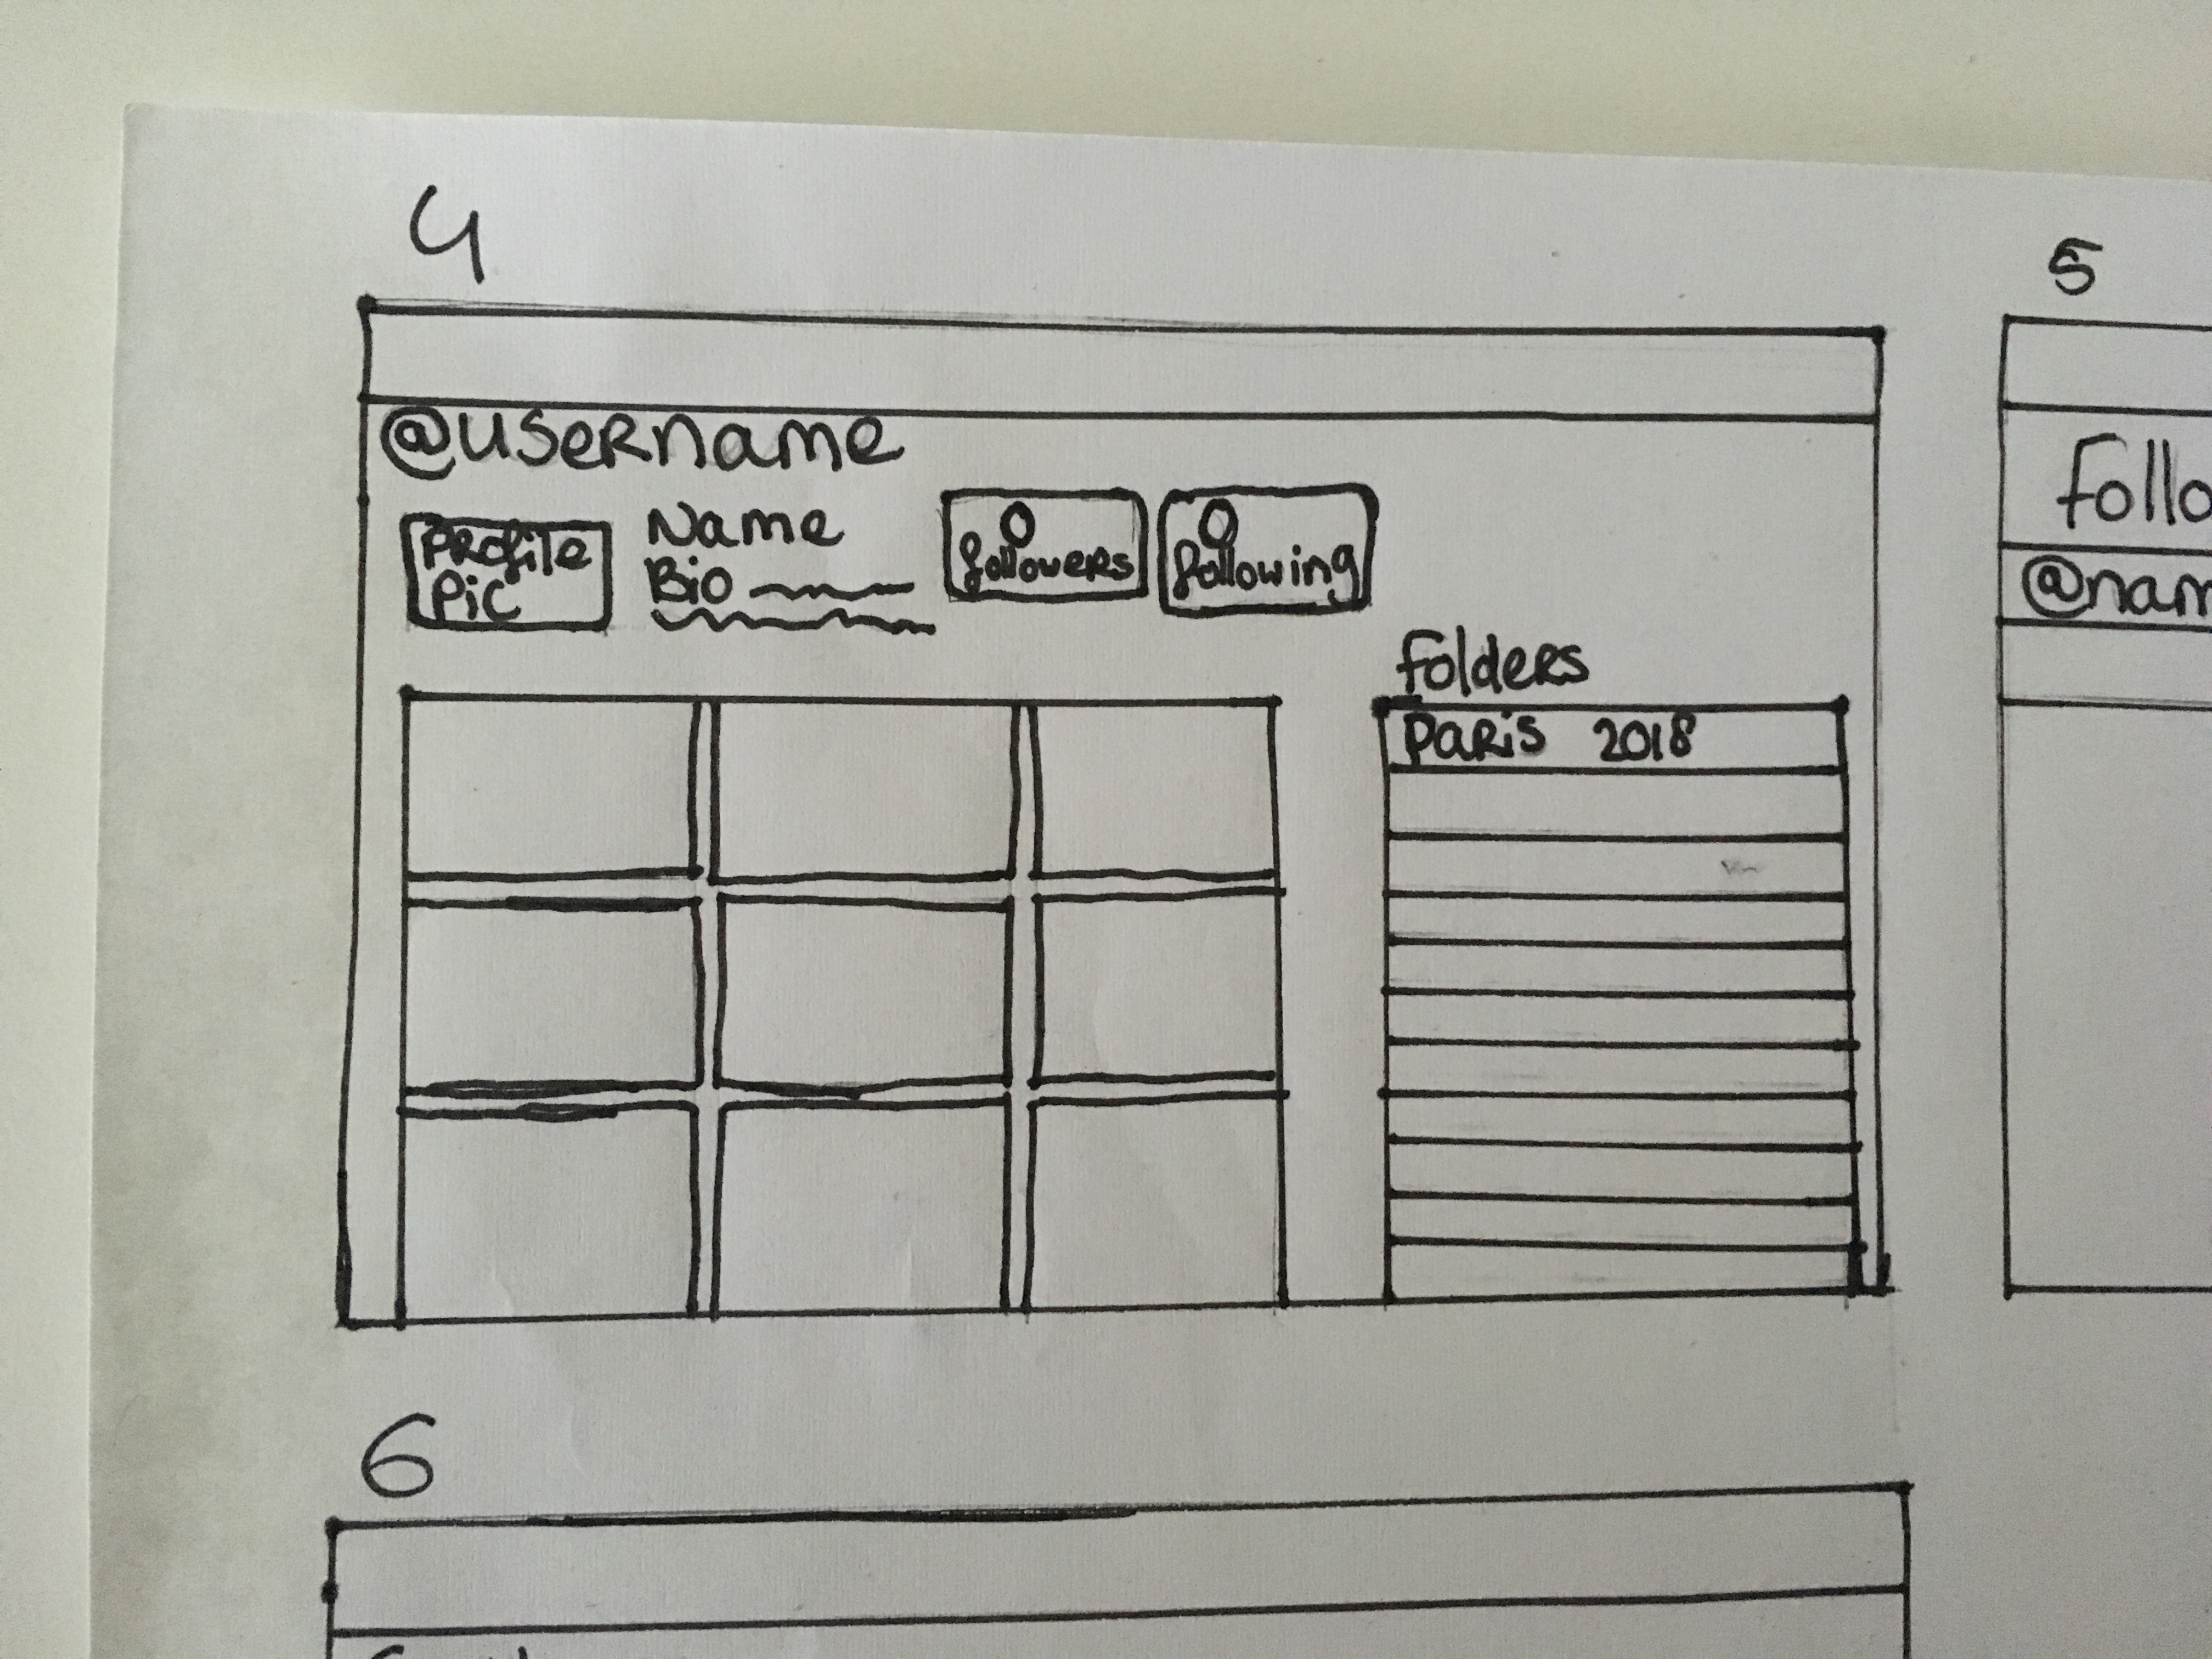 4
@username
Profile
Pic
Name
Bio
0
followers
0
following
folders
Paris 2018
5
follo
@nam
6